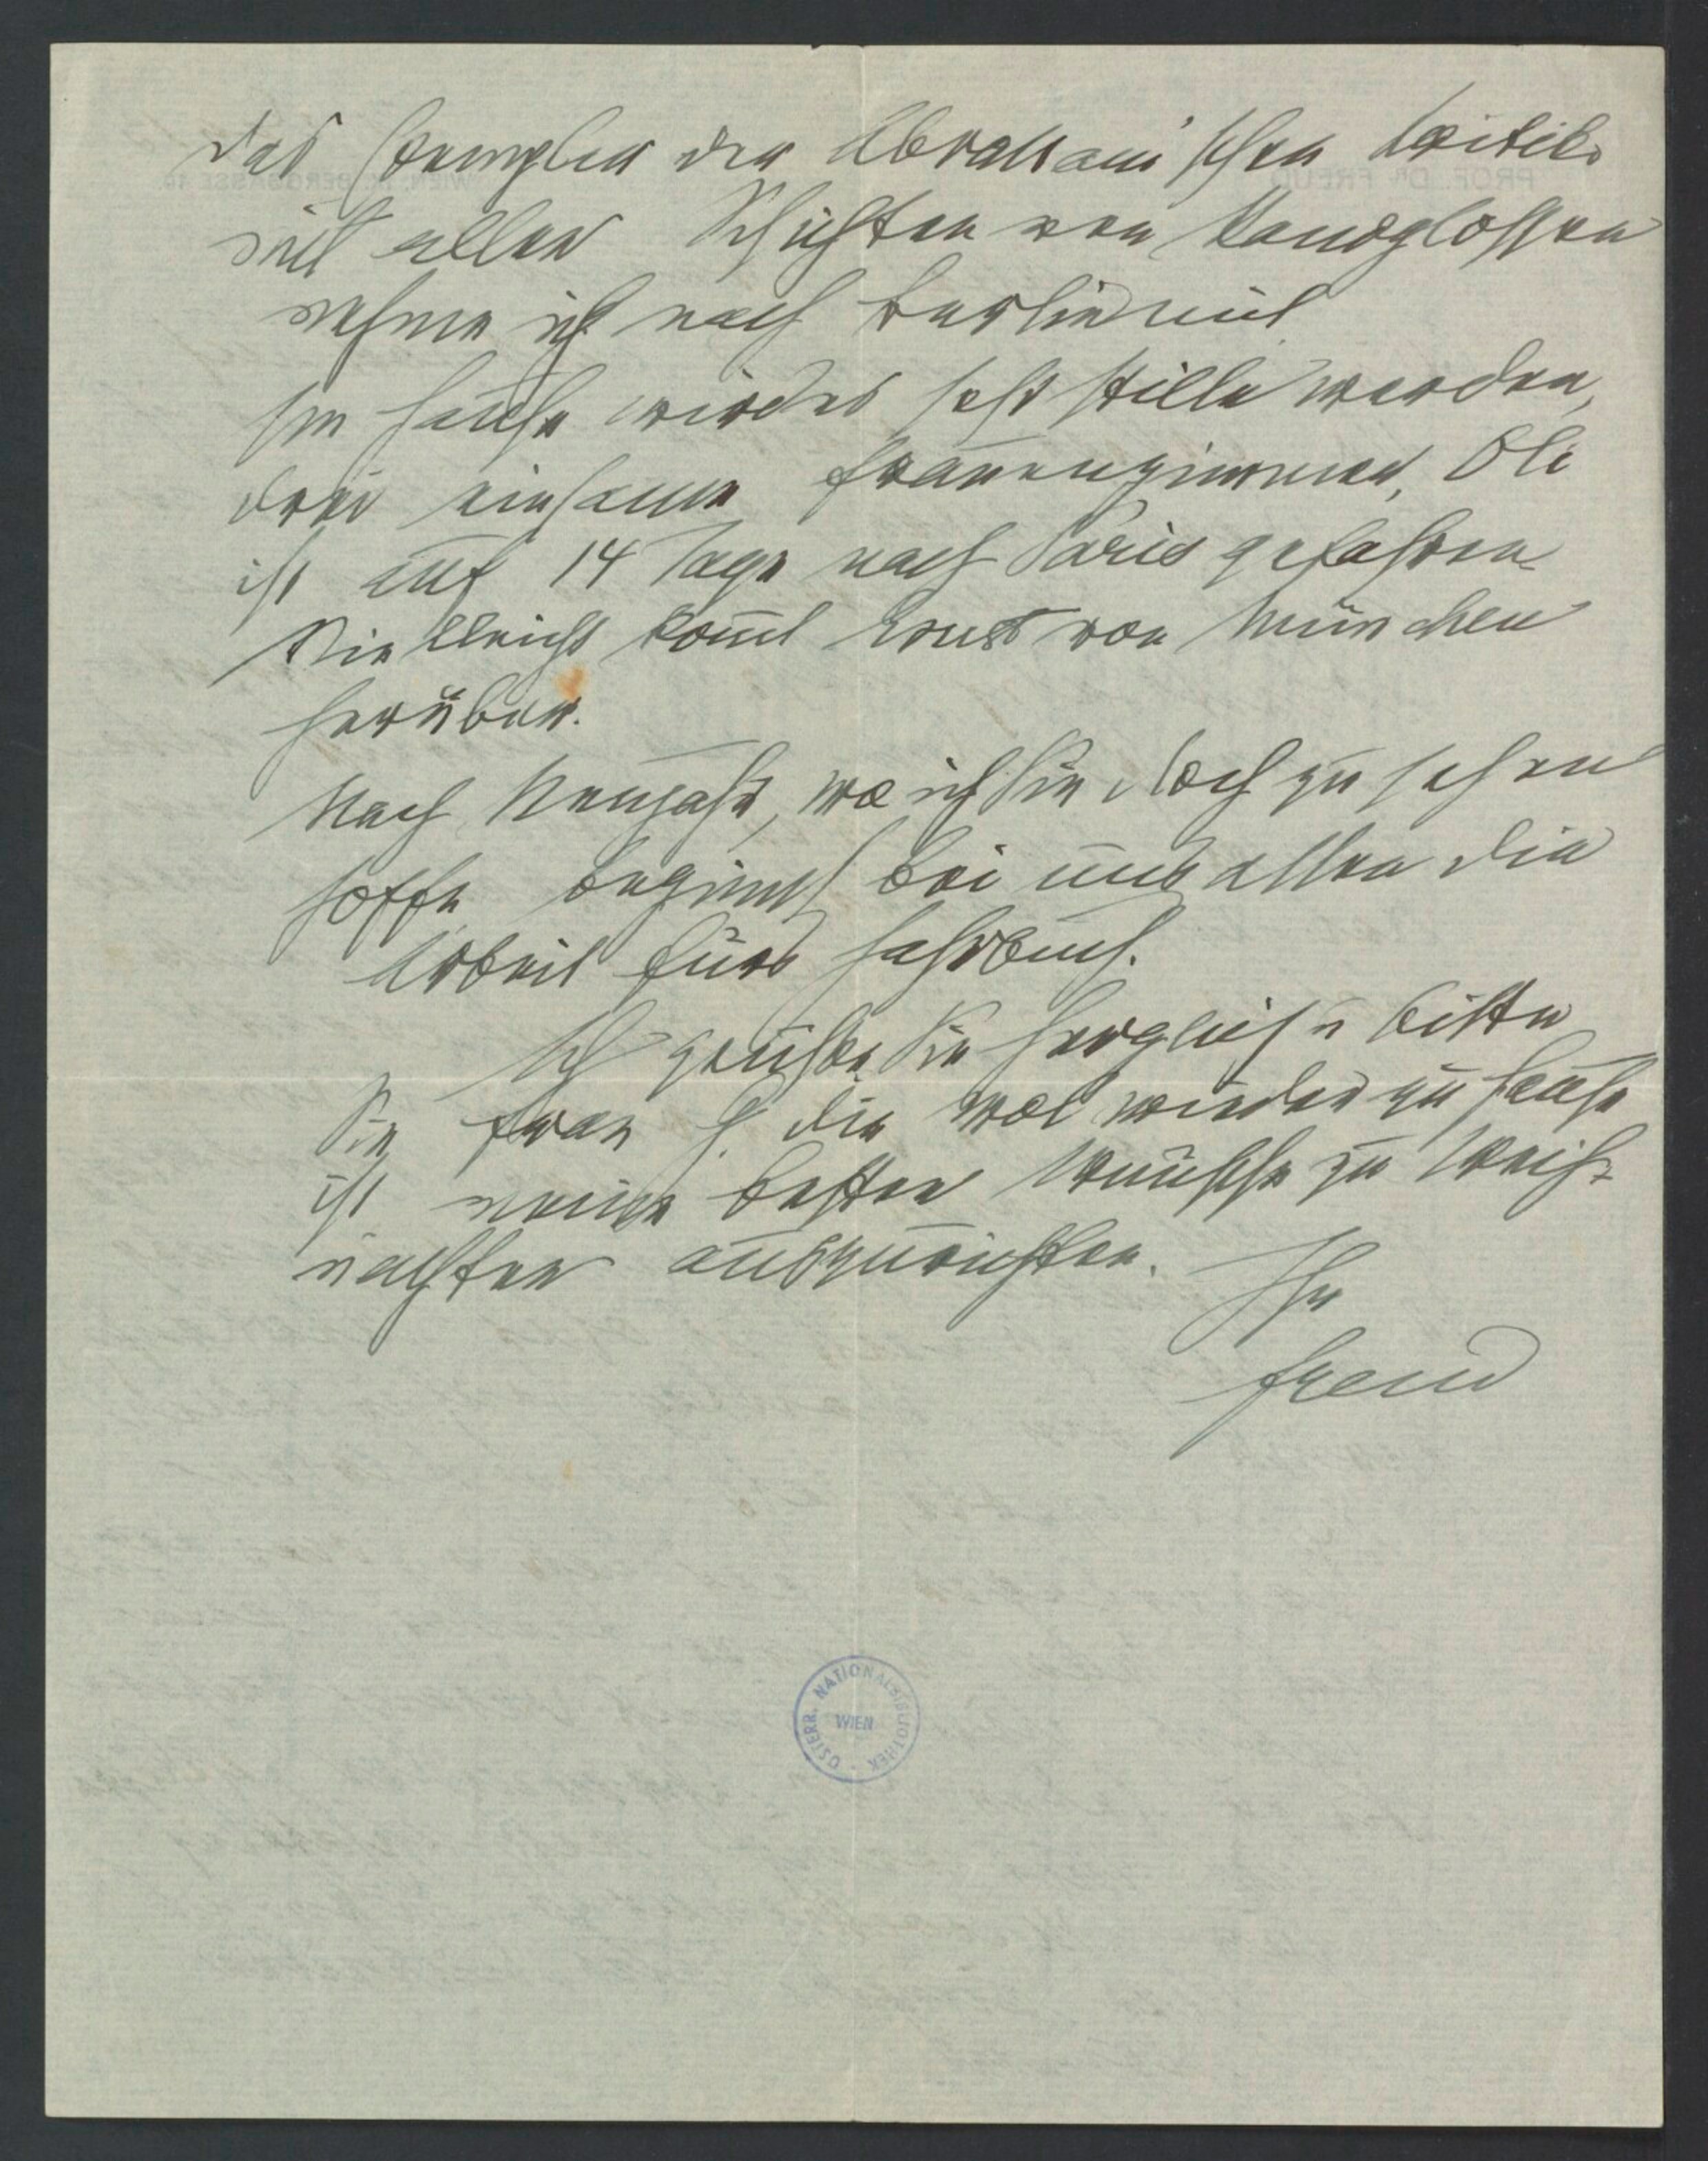 Das Exemplar der Abraham'schen Kritik
mit allen Schichten von Randglossen
nehme ich nach Berlin mit.
Im Hause wird es sehr stille werden,
drei einsame Frauenzimmer, Oli
ist auf 14 Tage nach Paris gefahren.
Vielleicht kom̄t Ernst von München
herüber.
Nach Neujahr, wo ich Sie doch zu sehen
hoffe, beginnt bei uns allen die
Arbeit fürs Jahrbuch.
Ich grüße Sie herzlich u bitte
Sie Frau G. die wol wieder zu Hause
ist meine besten Wünsche zu Weih-
nachten auszurichten.
Ihr
Freud
ÖSTERR. NATIONALBIBLIOTHEK
WIEN
PROF. DR FREUD
WIEN, IX. BERGGASSE 19.